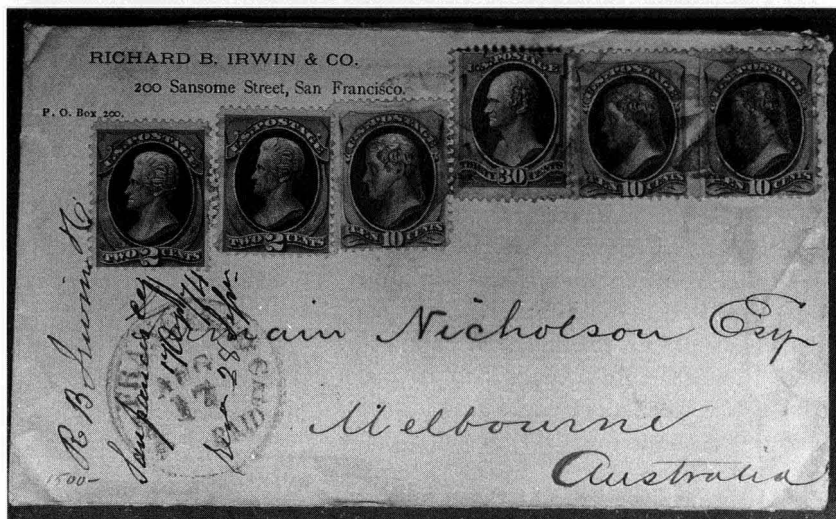 RICHARD B. IRWIN & CO.
200 Sansome Street, San Francisco.
P. O. Box 200.
U.S. POSTAGE
TWO 2 CENTS
U.S. POSTAGE
TWO 2 CENTS
U.S. POSTAGE
TEN 10 CENTS
U.S. POSTAGE
THIRTY 30 CENTS
U.S. POSTAGE
TEN 10 CENTS
U.S. POSTAGE
TEN 10 CENTS
Germain Nicholson Esq
Melbourne
Australia
R B Irwin
San Francisco
28
PAID
1500-